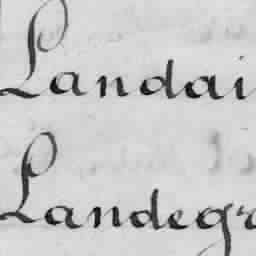 Landai
Landegr